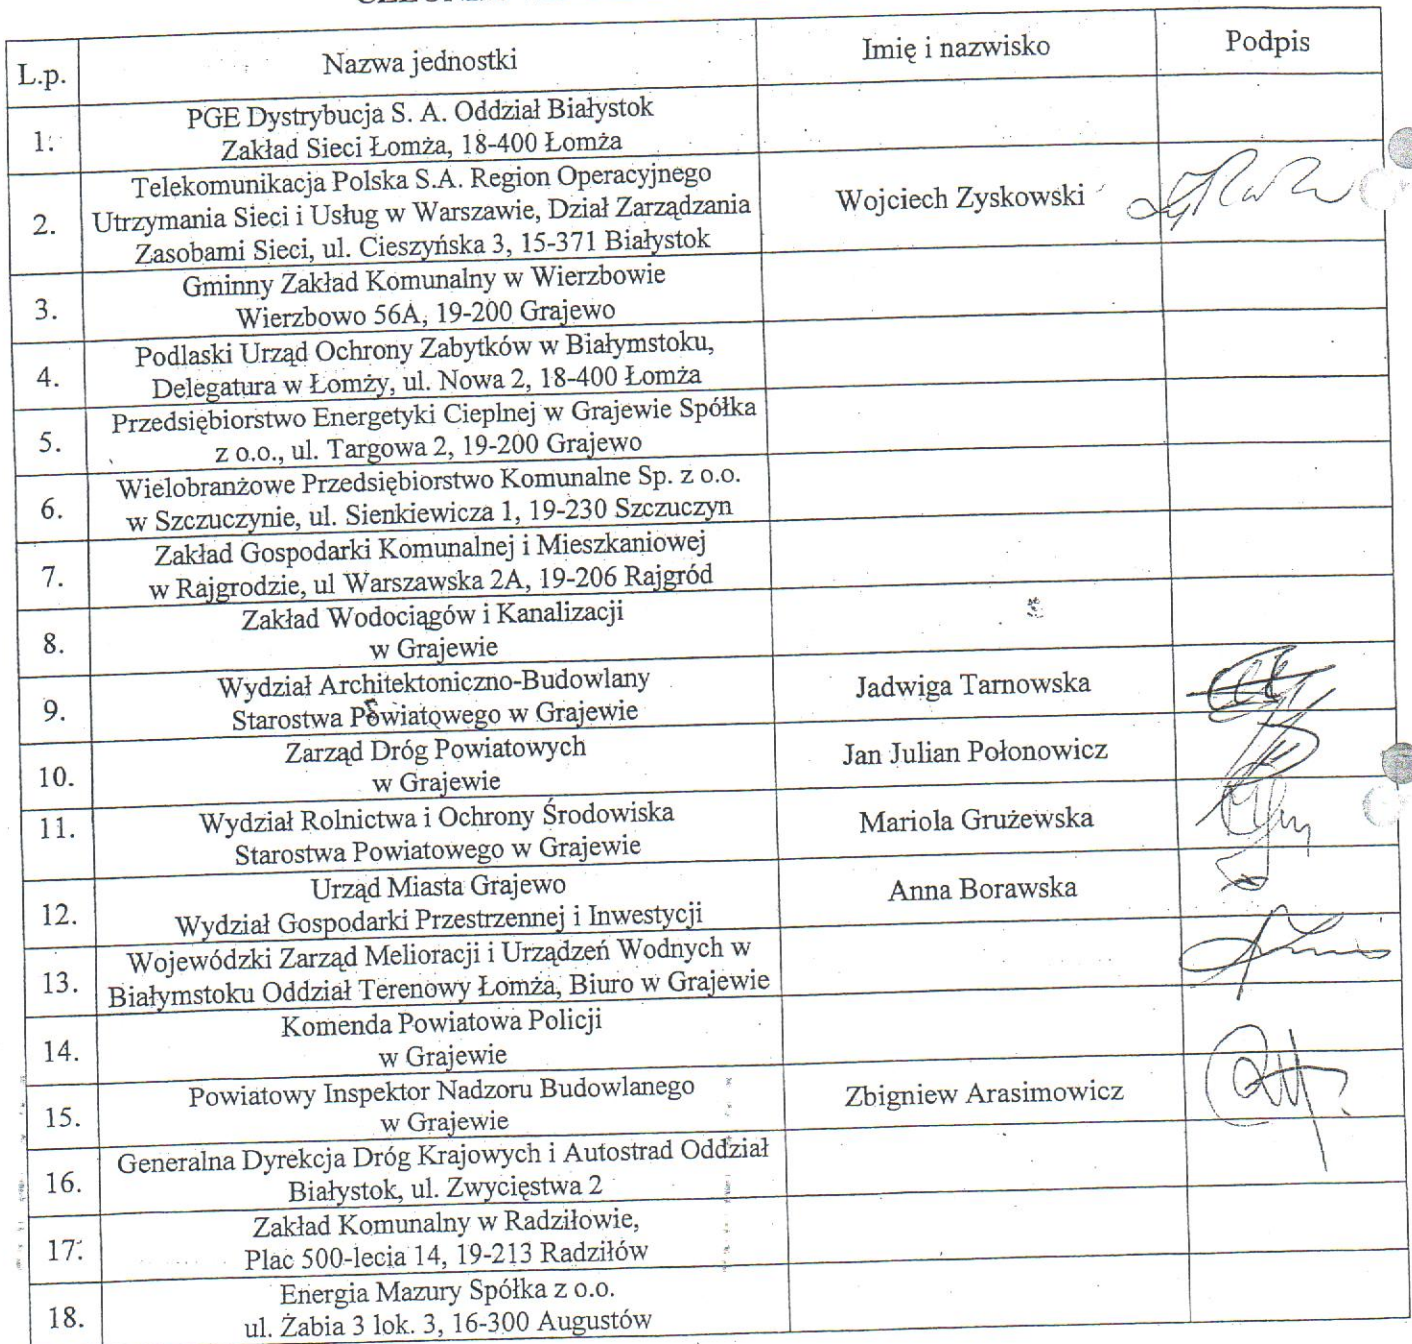 L.p.
Nazwa jednostki
Imię i nazwisko
Podpis
1.
PGE Dystrybucja S. A. Oddział Białystok
Zakład Sieci Łomża, 18-400 Łomża
2.
Telekomunikacja Polska S.A. Region Operacyjnego
Utrzymania Sieci i Usług w Warszawie, Dział Zarządzania
Zasobami Sieci, ul. Cieszyńska 3, 15-371 Białystok
Wojciech Zyskowski
3.
Gminny Zakład Komunalny w Wierzbowie
Wierzbowo 56A, 19-200 Grajewo
4.
Podlaski Urząd Ochrony Zabytków w Białymstoku,
Delegatura w Łomży, ul. Nowa 2, 18-400 Łomża
5.
Przedsiębiorstwo Energetyki Cieplnej w Grajewie Spółka
z o.o., ul. Targowa 2, 19-200 Grajewo
6.
Wielobranżowe Przedsiębiorstwo Komunalne Sp. z o.o.
w Szczuczynie, ul. Sienkiewicza 1, 19-230 Szczuczyn
7.
Zakład Gospodarki Komunalnej i Mieszkaniowej
w Rajgrodzie, ul Warszawska 2A, 19-206 Rajgród
8.
Zakład Wodociągów i Kanalizacji
w Grajewie
9.
Wydział Architektoniczno-Budowlany
Starostwa Powiatowego w Grajewie
Jadwiga Tarnowska
10.
Zarząd Dróg Powiatowych
w Grajewie
Jan Julian Połonowicz
11.
Wydział Rolnictwa i Ochrony Środowiska
Starostwa Powiatowego w Grajewie
Mariola Grużewska
12.
Urząd Miasta Grajewo
Wydział Gospodarki Przestrzennej i Inwestycji
Anna Borawska
13.
Wojewódzki Zarząd Melioracji i Urządzeń Wodnych w
Białymstoku Oddział Terenowy Łomża, Biuro w Grajewie
14.
Komenda Powiatowa Policji
w Grajewie
15.
Powiatowy Inspektor Nadzoru Budowlanego
w Grajewie
Zbigniew Arasimowicz
16.
Generalna Dyrekcja Dróg Krajowych i Autostrad Oddział
Białystok, ul. Zwycięstwa 2
17.
Zakład Komunalny w Radziłowie,
Plac 500-lecia 14, 19-213 Radziłów
18.
Energia Mazury Spółka z o.o.
ul. Żabia 3 lok. 3, 16-300 Augustów